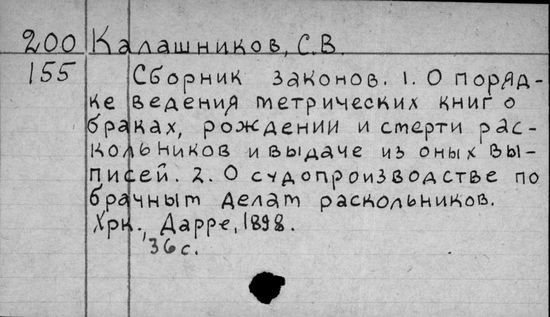 200 Калашников, С.В.
155 Сборник законов. 1. О поряд-
ке ведения метрических книг о
браках, рождении и смерти рас-
кольников и выдаче из оных вы-
писей. 2. О судопроизводстве по
брачным делам раскольников.
Хрк., Дарре, 1898.
36 с.